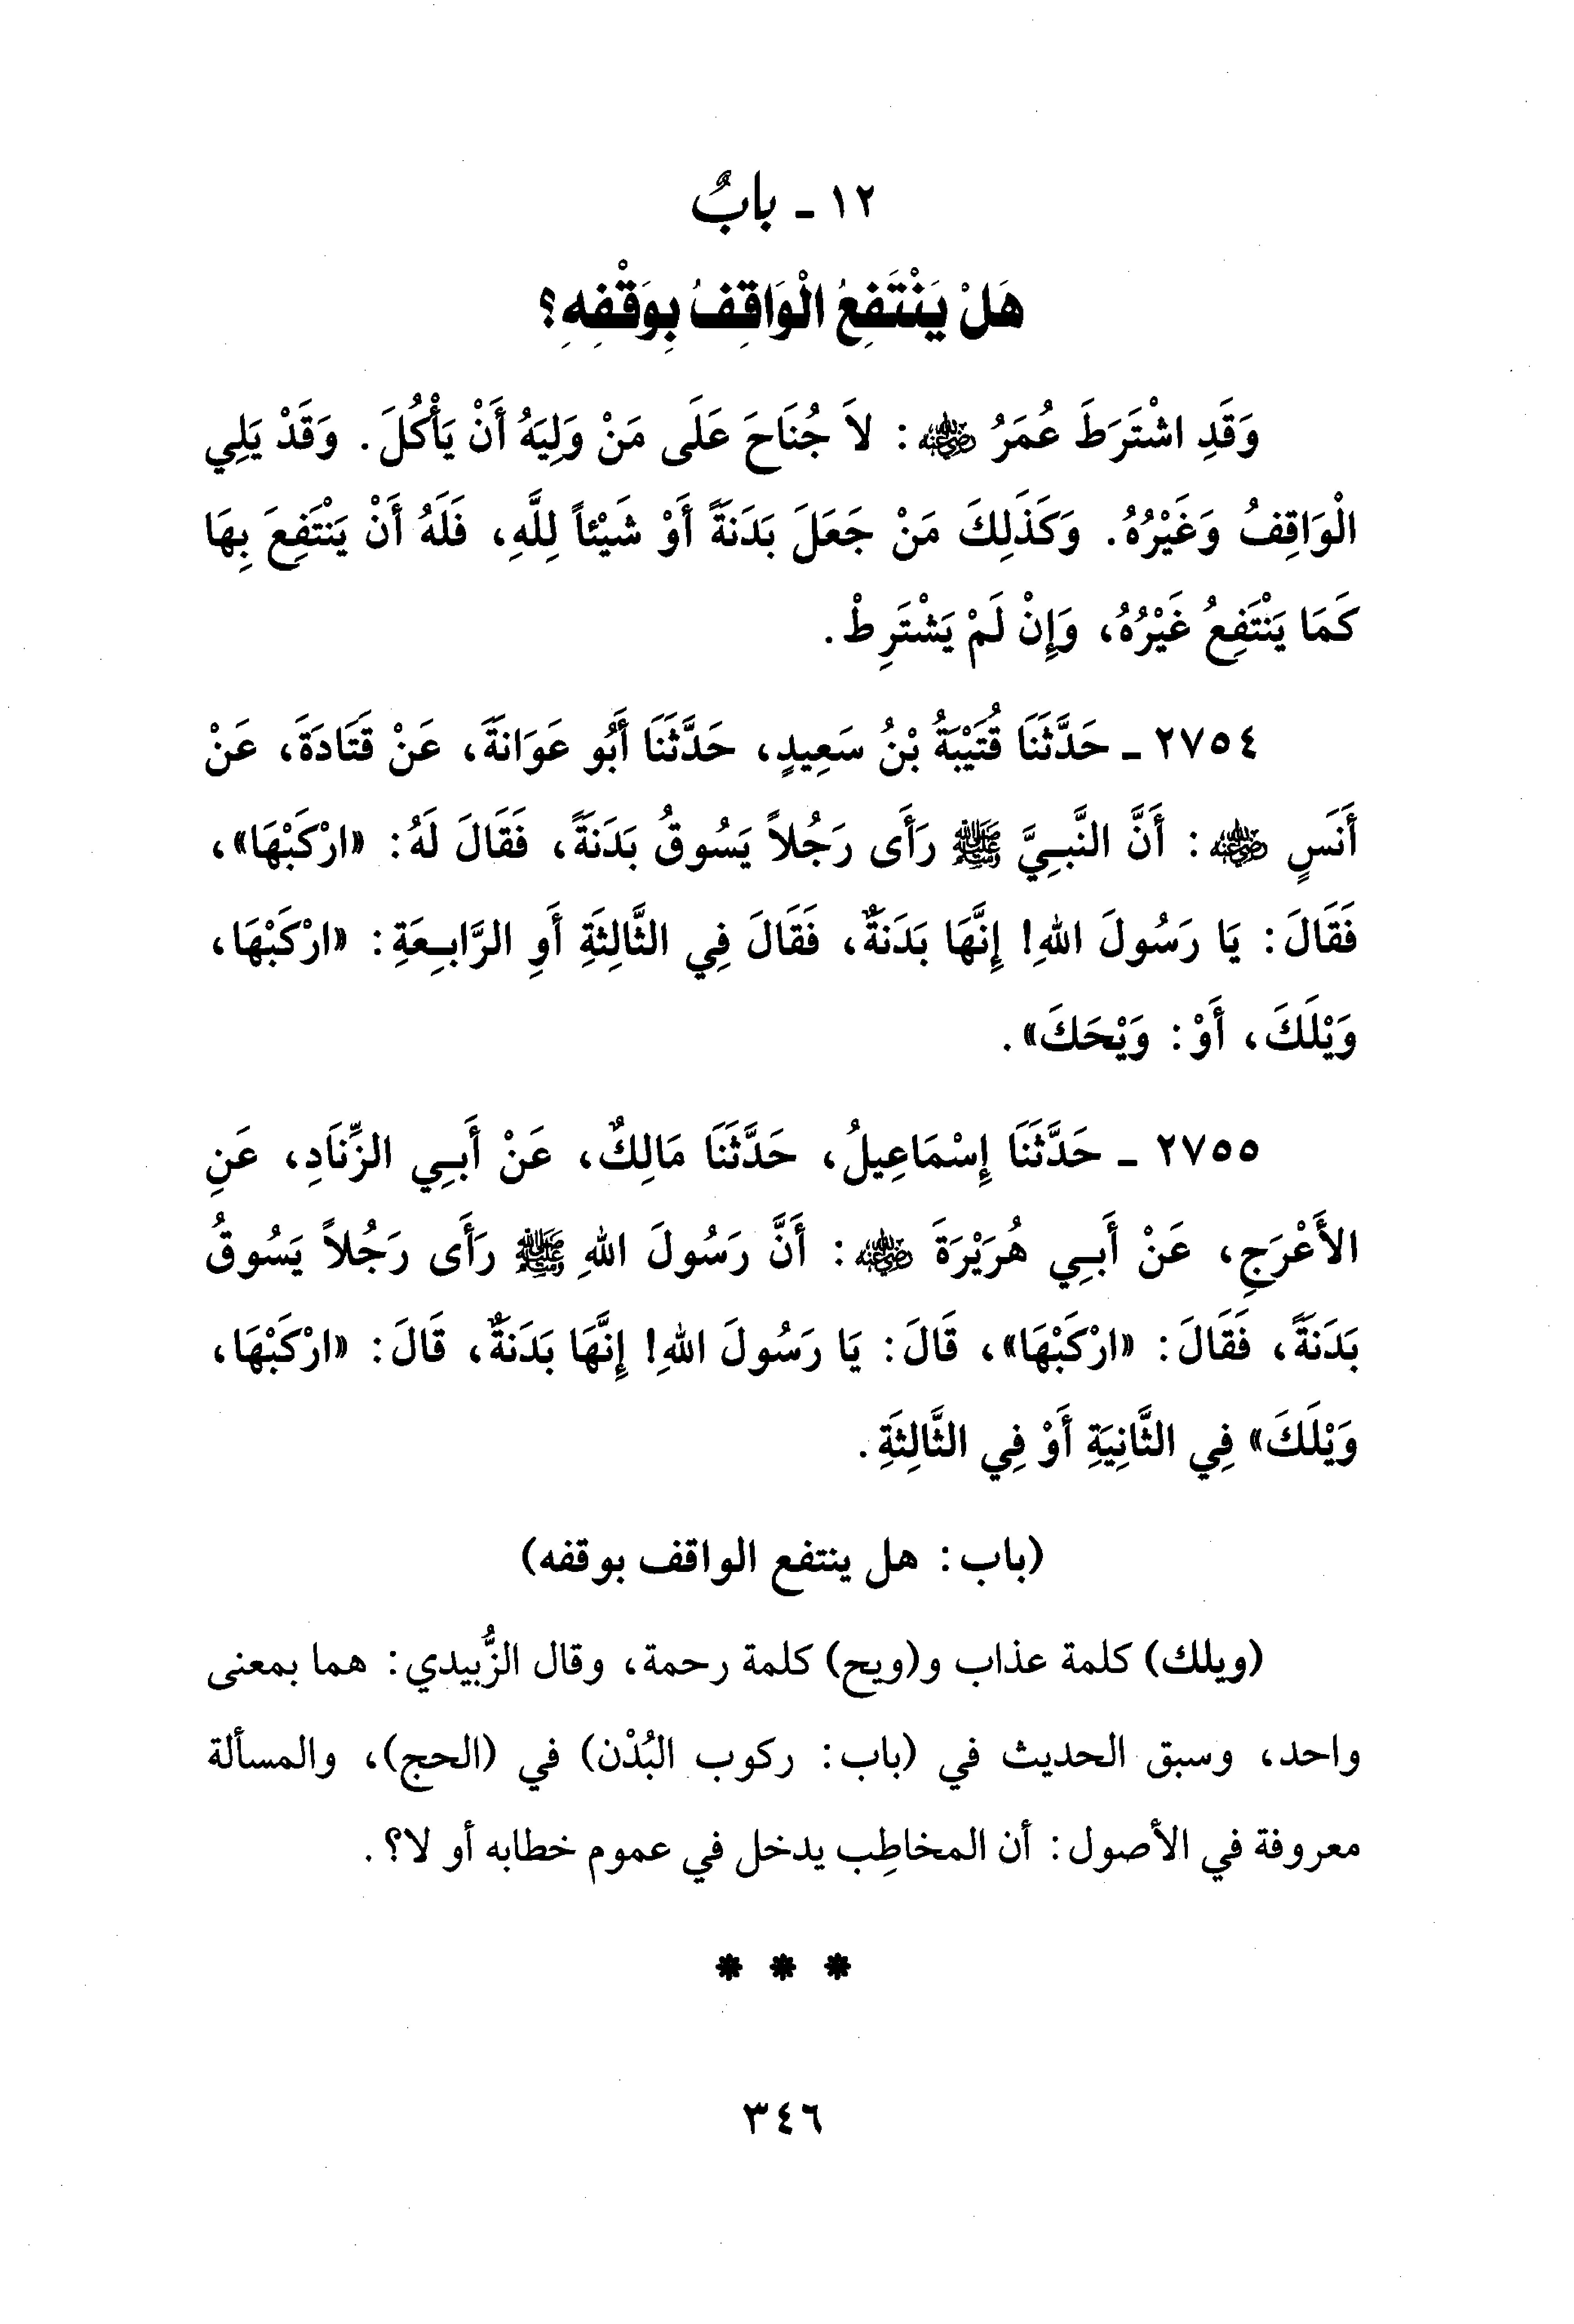 ١٢ ـ بابٌ
هَلْ يَنْتَفِعُ الْوَاقِفُ بِوَقْفِهِ؟
وَقَدِ اشْتَرَطَ عُمَرُ رضي الله عنه: لاَ جُنَاحَ عَلَى مَنْ وَلِيَهُ أَنْ يَأْكُلَ. وَقَدْ يَلِي
الْوَاقِفُ وَغَيْرُهُ. وَكَذَلِكَ مَنْ جَعَلَ بَدَنَةً أَوْ شَيْئاً لِلَّهِ، فَلَهُ أَنْ يَنْتَفِعَ بِهَا
كَمَا يَنْتَفِعُ غَيْرُهُ، وَإِنْ لَمْ يَشْتَرِطْ.
٢٧٥٤ ـ حَدَّثَنَا قُتَيْبَةُ بْنُ سَعِيدٍ، حَدَّثَنَا أَبُو عَوَانَةَ، عَنْ قَتَادَةَ، عَنْ
أَنَسٍ رضي الله عنه: أَنَّ النَّبِيَّ ﷺ رَأَى رَجُلاً يَسُوقُ بَدَنَةً، فَقَالَ لَهُ: «ارْكَبْهَا»،
فَقَالَ: يَا رَسُولَ اللهِ! إِنَّهَا بَدَنَةٌ، فَقَالَ فِي الثَّالِثَةِ أَوِ الرَّابِعَةِ: «ارْكَبْهَا،
وَيْلَكَ، أَوْ: وَيْحَكَ».
٢٧٥٥ ـ حَدَّثَنَا إِسْمَاعِيلُ، حَدَّثَنَا مَالِكٌ، عَنْ أَبِي الزِّنَادِ، عَنِ
الأَعْرَجِ، عَنْ أَبِي هُرَيْرَةَ رضي الله عنه: أَنَّ رَسُولَ اللهِ ﷺ رَأَى رَجُلاً يَسُوقُ
بَدَنَةً، فَقَالَ: «ارْكَبْهَا»، قَالَ: يَا رَسُولَ اللهِ! إِنَّهَا بَدَنَةٌ، قَالَ: «ارْكَبْهَا،
وَيْلَكَ» فِي الثَّانِيَةِ أَوْ فِي الثَّالِثَةِ.
(باب: هل ينتفع الواقف بوقفه)
(ويلك) كلمة عذاب و(ويح) كلمة رحمة، وقال الزُّبيدي: هما بمعنى
واحد، وسبق الحديث في (باب: ركوب البُدْن) في (الحج)، والمسألة
معروفة في الأصول: أن المخاطِب يدخل في عموم خطابه أو لا؟.
* * *
٣٤٦